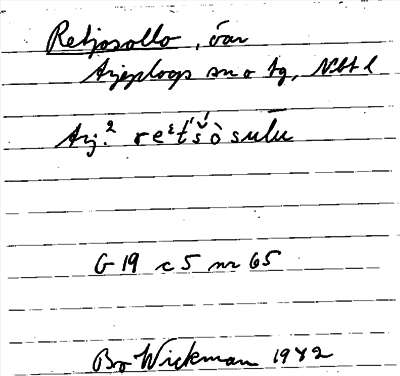 Retjosollo, öar
Arjeplogs sn o tg, Nbt l
Arj.² reᵋt́š́òsulu
G 19 c 5 nr 65
Bo Wickman 1942